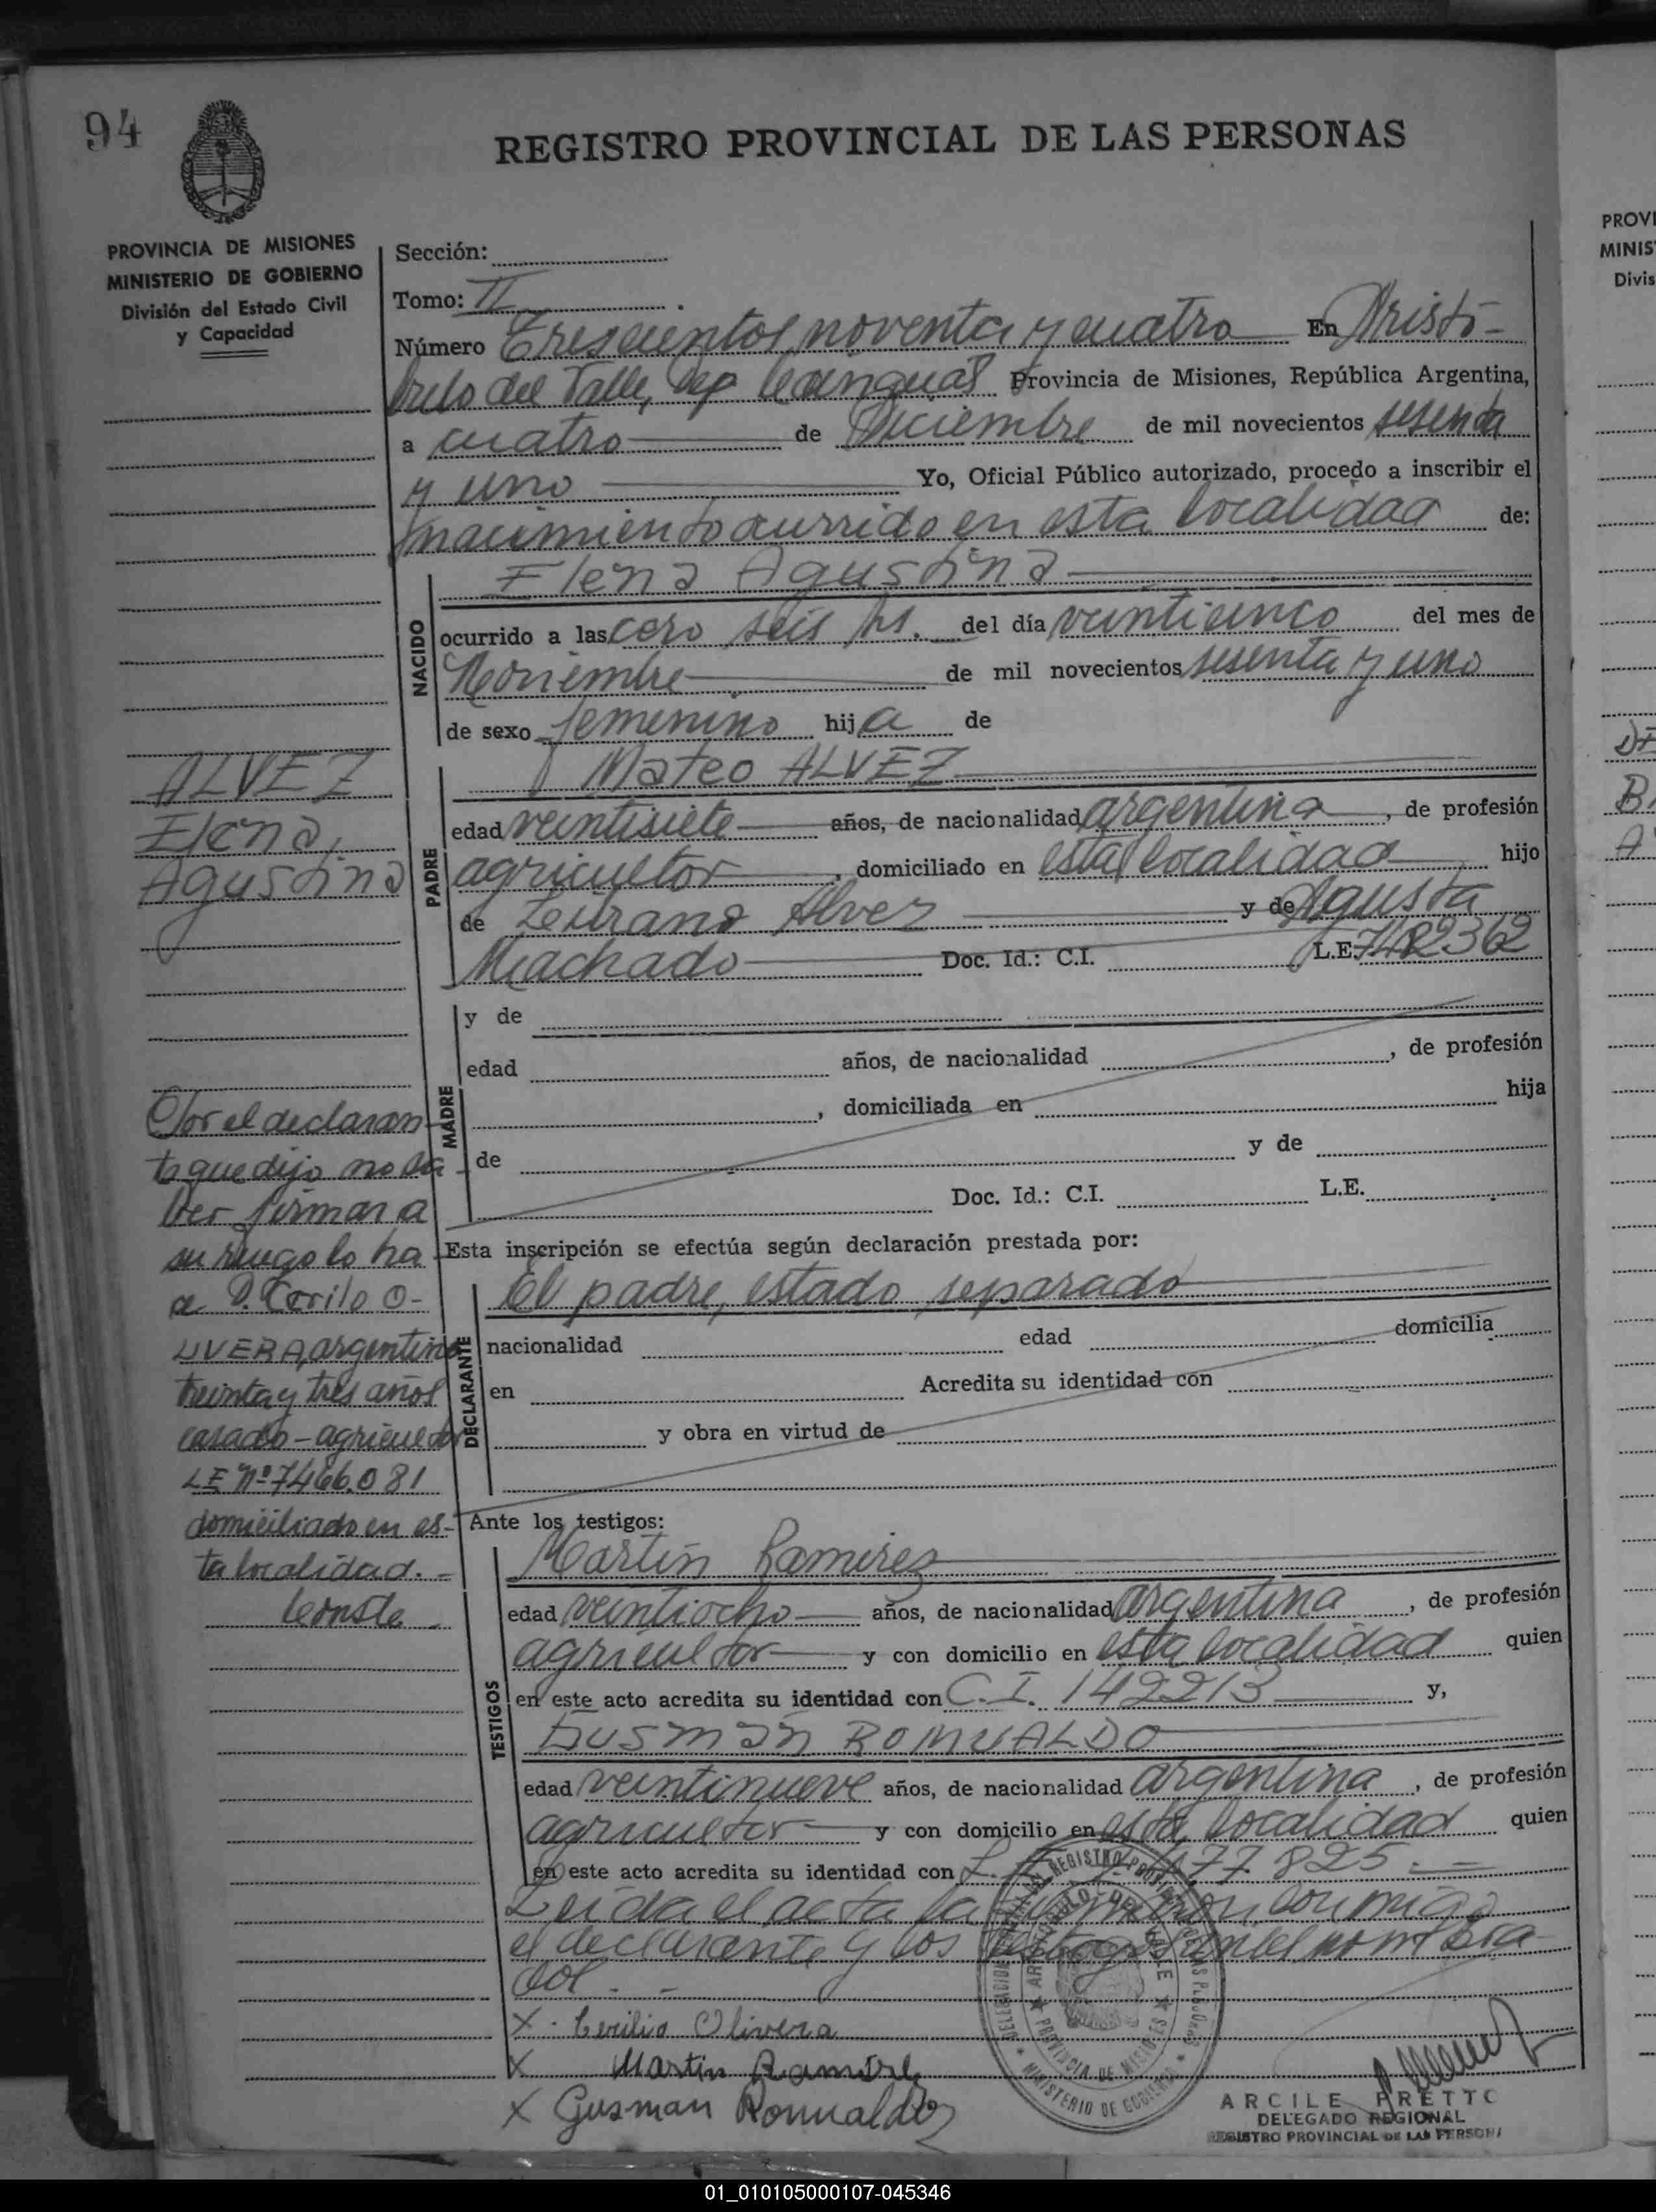 94
REGISTRO PROVINCIAL DE LAS PERSONAS
PROVINCIA DE MISIONES
MINISTERIO DE GOBIERNO
División del Estado Civil
y Capacidad
Sección:
Tomo: II
Número Trescientos noventa y cuatro En Aristó-
bulo del Valle, Dep Cainguas Provincia de Misiones, República Argentina,
a cuatro de Diciembre de mil novecientos sesenta
y uno Yo, Oficial Público autorizado, procedo a inscribir el
nacimiento ocurrido en esta localidad de:
NACIDO
Elena Agustina
ocurrido a las cero seis hs. del día veinticinco del mes de
Noviembre de mil novecientos sesenta y uno
de sexo femenino hija de
PADRE
Mateo ALVEZ
edad veintisiete años, de nacionalidad argentina, de profesión
agricultor, domiciliado en esta localidad hijo
de Alvez y de Agusta
Machado Doc. Id.: C.I. L.E.
MADRE
y de
edad años, de nacionalidad , de profesión
, domiciliada en hija
de y de
Doc. Id.: C.I. L.E.
Esta inscripción se efectúa según declaración prestada por:
DECLARANTE
El padre, estado separado
nacionalidad edad domicilia
en Acredita su identidad con
y obra en virtud de
Ante los testigos:
TESTIGOS
Martin Ramirez
edad veintiocho años, de nacionalidad argentina, de profesión
agricultor y con domicilio en esta localidad quien
en este acto acredita su identidad con C.I. 142213 y,
Gusmán ROMUALDO
edad veintinueve años, de nacionalidad argentina, de profesión
agricultor y con domicilio en esta localidad quien
en este acto acredita su identidad con L.E. 825.
Leida el acta la conmigo
el declarante y los testigos en el nombra
dos.
X. Cirilio Olivera
X Martin Ramire
X Gusman Romualdo
ALVEZ
Elena,
Agustina
Por el declaran
te que dijo no sa
ber firmar a
su ruego lo ha
ce D. Cirilo O-
LIVERA, argentino
treinta y tres años
casado - agricultor
LE Nº 7466.081
domiciliado en es-
ta localidad. -
Conste.
DELEGACION REGISTRO PROVINCIAL DE LAS PERSONAS
ARISTOBULO DEL VALLE
PROVINCIA DE MISIONES
MINISTERIO DE GOBIERNO
ARCILE PRETTO
DELEGADO REGIONAL
REGISTRO PROVINCIAL DE LAS PERSONA
PROVI
MINIS
Divis
01_010105000107-045346